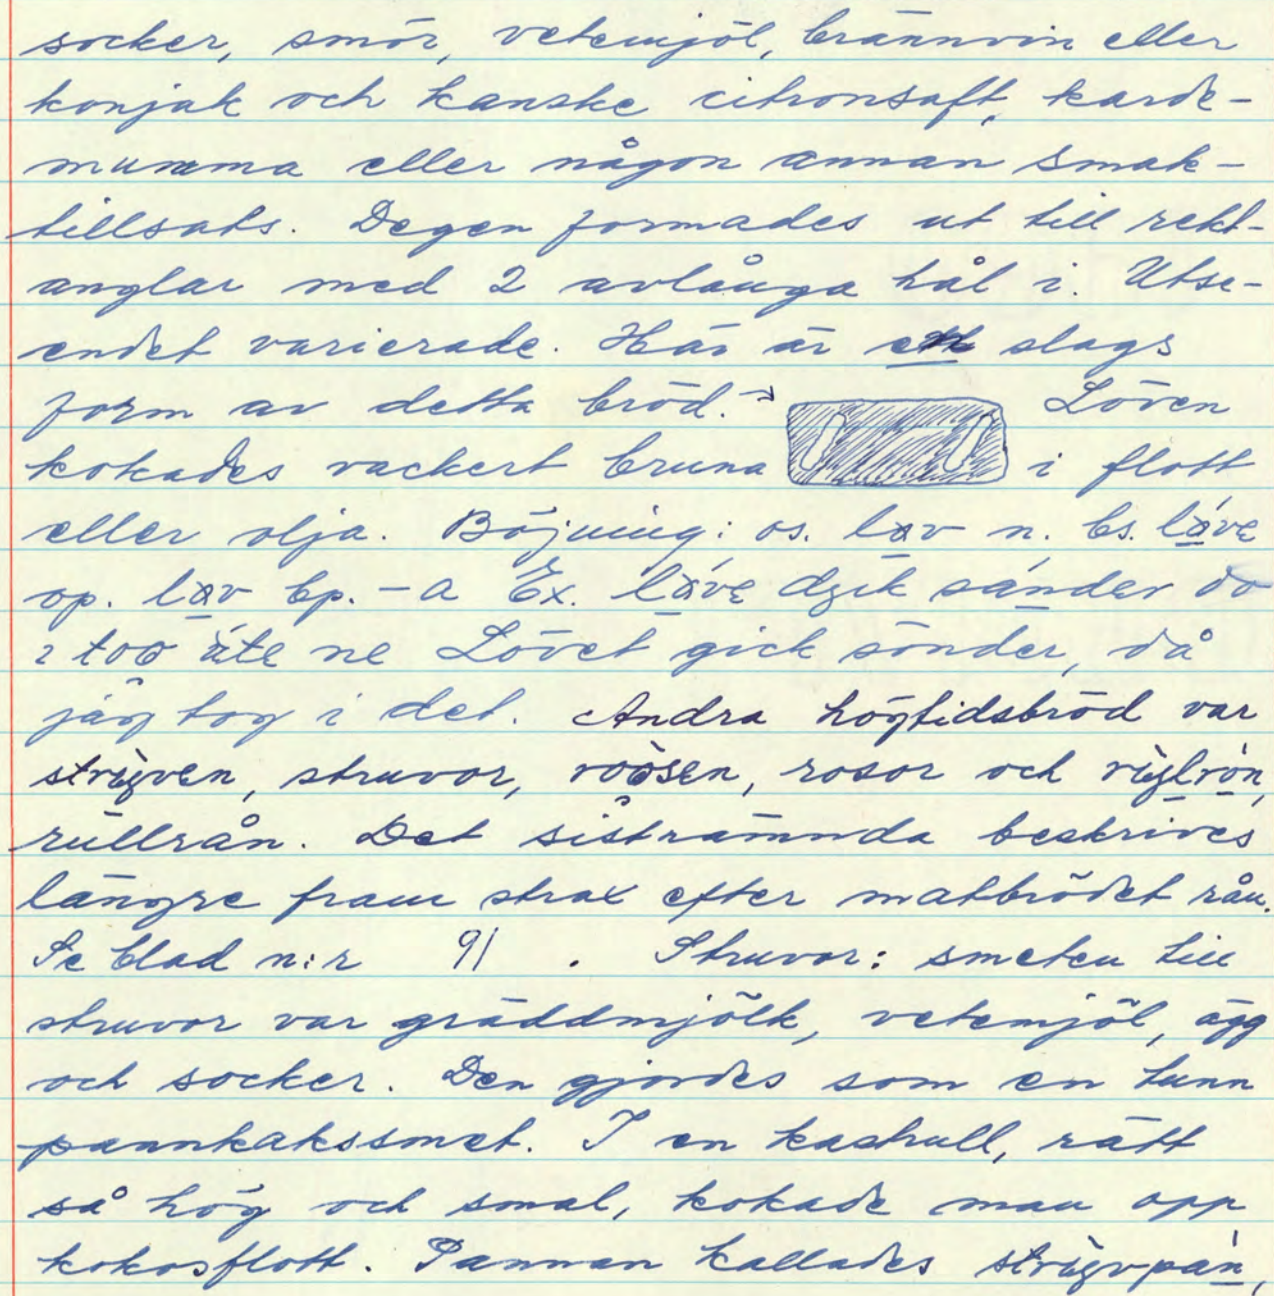 socker, smör, vetemjöl, brännvin eller
konjak och kanske citronsaft, karde-
mumma eller någon annan smak-
tillsats. Degen formades ut till rekt-
anglar med 2 avlånga hål i. Utse-
endet varierade. Här är en slags
form av detta bröd. Löven
kokades vackert bruna i flott
eller olja. Böjning: os. løv n. bs. lø̀vę
op. løv bp. -a Ex. lø̀vę dzik sander do
i too äte ne Lövet gick sönder, då
jag tog i det. Andra högtidsbröd var
struvor, roòsen, rosor och
rullrån. Det sistnämnda beskrives
längre fram strax efter matbrödet rån.
Se blad n:r 91. Struvor: smeten till
struvor var gräddmjölk, vetemjöl, ägg
och socker. Den gjordes som en tunn
pannkakssmet. I en kastrull, rätt
så hög och smal, kokade man opp
kokosflott. Pannan kallades